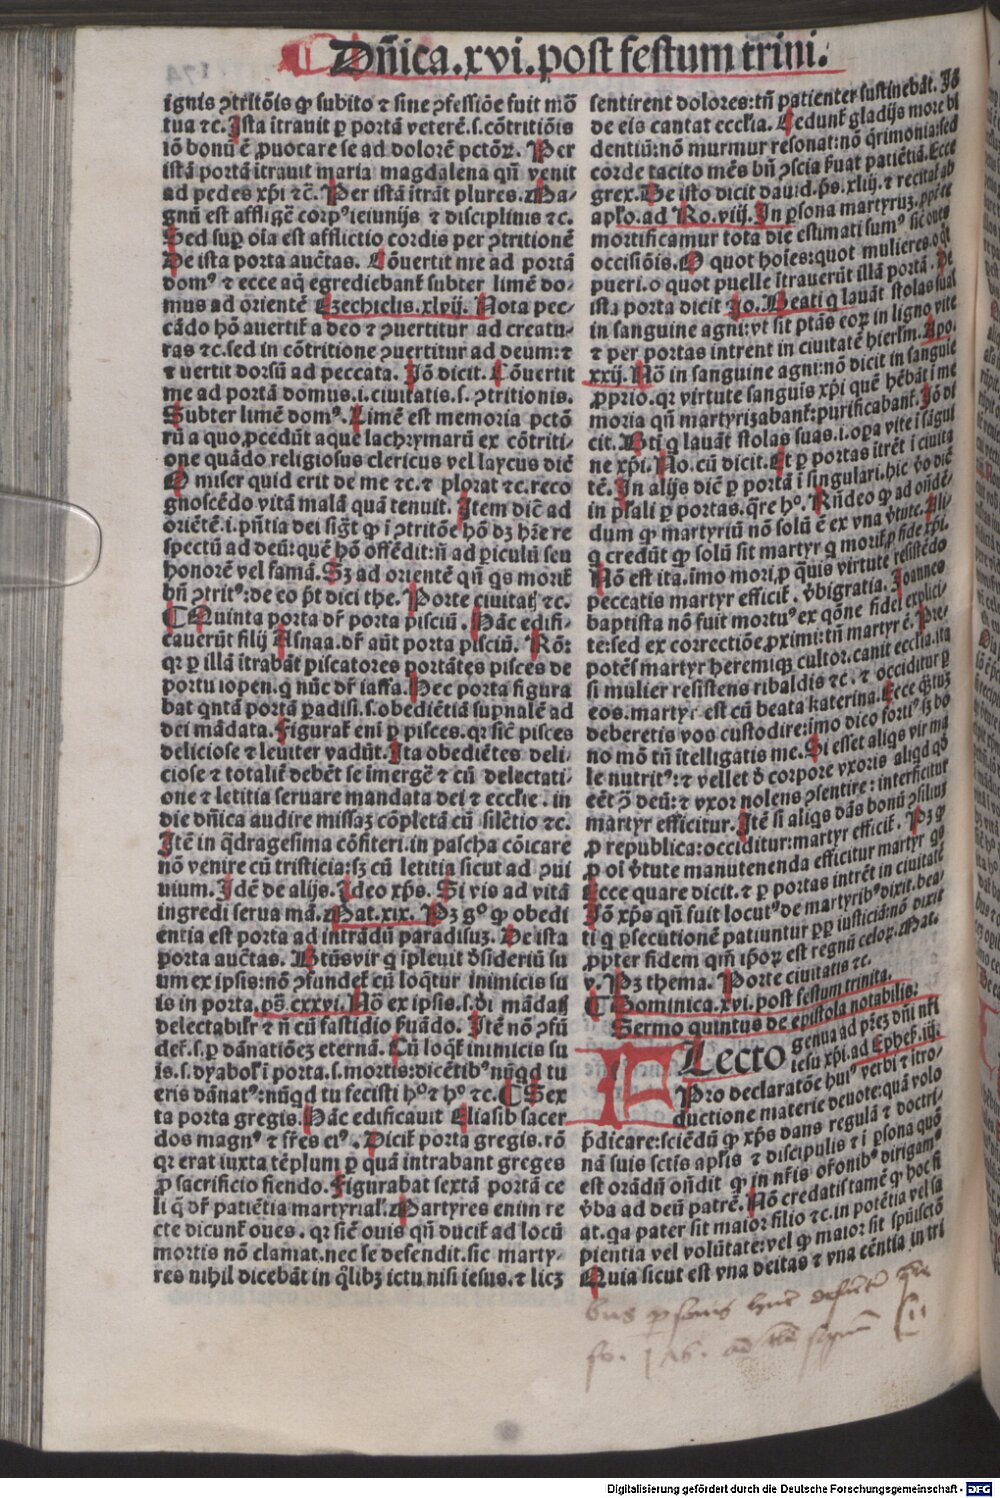 Dñica.xvi.post festum trini.
ignis ꝯtritōis ꝙ subito ⁊ sine ꝯfessiōe fuit mō
tua ⁊c. Ista ītrauit ꝑ portā veterē.s.cōtritiōis
iō bonū ē ꝓuocare se ad dolorē pctōꝝ. Per
istā portā ītrauit maria magdalena qñ venit
ad pedes xp̄i ⁊c̄. Per istā ītrāt plures. Ma-
gnū est affligē corpꝰ ieiunijs ⁊ disciplinis ⁊c.
Sed suꝑ oīa est afflictio cordis per ꝯtritionē
De ista porta auctas. Cōuertit me ad portā
domꝰ ⁊ ecce aq̄ egrediebant̄ subter limē do-
mus ad orientē Ezechielis.xlvij. Nota pec-
cādo hō auertit̄ a deo ⁊ ꝯuertitur ad creatu-
ras ⁊c.sed in cōtritione ꝯuertitur ad deum:⁊
⁊ vertit dorsū ad peccata. Iō dicit. Cōuertit
me ad portā domus.i.ciuitatis.s.ꝯtritionis.
Subter limē domꝰ. Limē est memoria pctō
rū a quo ꝓcedūt aque lachrymarū ex cōtriti-
one quādo religiosus clericus vel laycus dic̄
O miser quid erit de me ⁊c.⁊ plorat ⁊c.reco
gnoscēdo vitā malā quā tenuit. Item dic̄ ad
oriētē.i.pñtia dei sigt̄ ꝙ ī ꝯtritōe hō dꝫ hr̄e re
spectū ad deū:quē hō offēdit:ñ ad ꝑiculū seu
honorē vel famā. Sꝫ ad orientē qñ qs morit̄
bñ ꝯtritꝰ:de eo pt̄ dici the. Porte ciuitatꝭ ⁊c.
Quinta porta dr̄ porta pisciū. Hāc edifi-
cauerūt filij Asnaa.dr̄ aūt porta pisciū. Rō:
qꝛ ꝑ illā ītrabāt piscatores portātes pisces de
portu iopen.q nūc dr̄ iaffa. Hec porta figura
bat qntā portā ꝑadisi.s.obediētiā supnalē ad
dei mādata. Figurat̄ enī ꝑ pisces.qꝛ sic̄ pisces
deliciose ⁊ leuiter vadūt. Ita obediētes deli-
ciose ⁊ totalit̄ debēt se īmergē ⁊ cū delectati-
one ⁊ letitia seruare mandata dei ⁊ ecclīe. in
die dñica audire missaꝫ cōpletā cū silētio ⁊c.
Itē in q̄dragesima cōfiteri.in pascha cōicare
nō venire cū tristicia:sꝫ cū letitia sicut ad ꝯui
uium. Idē de alijs. Ideo xp̄s. Si vis ad vitā
ingredi serua mā. Mat.xix. Pꝫ gº ꝙ obedi
entia est porta ad intrādū paradisuꝫ. De ista
porta auctas. Btūs vir q īpleuit ꝺsideriū su
um ex ipsis:nō ꝯfundet̄ cū loq̄tur inimicis su
is in porta.ps̄ cxxvi. Nō ex ipsis.s.ꝺi mādatꝭ
delectabit̄ ⁊ ñ cū fastidio ẜuādo. Itē nō ꝯfū
det̄.s.ꝑ dānatiōeꝫ eternā. Cū loqt̄ inimicis su
is.s.dyabol̄ ī porta.s.mortis:dicētibꝰ nūqd tu
eris dānatꝰ:nūqd tu fecisti hº ⁊ hº ⁊c. Sex
ta porta gregis. Hāc edificauit Eliasib sacer
dos magnꝰ ⁊ fr̄es eiꝰ. Dicit̄ porta gregis.rō
qꝛ erat iuxta tēplum ꝑ quā intrabant greges
ꝓ sacrificio fiendo. Figurabat sextā portā ce
li q̄ dr̄ patiētia martyrial̄. Martyres enim re
cte dicunt̄ oues.qꝛ sic̄ ouis qñ ducit̄ ad locū
mortis nō clamat.nec se defendit.sic marty-
res nihil dicebāt in q̄libꝫ ictu nisi iesus.⁊ licꝫ
sentirent dolores:tñ patienter sustinebāt. Iō
de eis cantat ecclīa. Cedunt̄ gladijs more bi
dentiū:nō murmur resonat:nō q̄rimonia:sed
corde tacito mēs bñ ꝯscia ẜuat patiētiā. Ecce
grex. De isto dicit dauid.ps̄.xliij.⁊ recitat ab
apl̄o.ad Ro.viij. In ꝑsona martyruꝫ.ppt̄ te
mortificamur tota die estimati sumꝰ sic̄ oues
occisiōis. O quot hoīes:quot mulieres.oq̄t
pueri.o quot puelle ītrauerūt illā portā. De
ista porta dicit Io. Beati q lauāt stolas suas
in sanguine agni:vt sit ptās eoꝝ in ligno vite
⁊ per portas intrent in ciuitatē hierl̄m. Apo.
xxij. Nō in sanguine agni:nō dicit in sanguīe
ꝓprio.qꝛ virtute sanguis xp̄i quē hēbāt ī me
moria qñ martyrizabant̄:purificabant̄. Iō di
cit. Bti q lauāt stolas suas.i.opa vite ī sāgui
ne xp̄i. No.cū dicit. Et ꝑ portas itrēt ī ciuita
tē. In alijs dic̄ ꝑ portā ī singulari.hic ꝟo dic̄
in pl̄ali ꝑ portas.qr̄e hº. Rñdeo ꝙ ad ondē-
dum ꝙ martyriū nō solū ē ex vna ꝟtute. Ali-
q credūt ꝙ solū sit martyr q morit̄ ꝓ fide xp̄i.
Nō est ita.imo mori,ꝓ q̄uis virtute resistēdo
peccatis martyr efficit̄. ꝟbigratia. Ioannes
baptista nō fuit mortuꝰ ex qōne fidei explici-
te:sed ex correctiōe ꝓximi:tñ martyr ē. Pre-
potēs martyr heremiqꝫ cultor.canit ecclīa.ita
si mulier resistens ribaldis ⁊c.⁊ occiditur ꝑ
eos.martyr est cū beata katerina. Ecce q̄ꝉꝫ
deberetis vos custodire:imo dico fortiꝰ:sꝫ bo
no mō tñ ītelligatis me. Si esset aliqs vir ma
le nutritꝰ:⁊ vellet ꝺ corpore vxoris aliqd qꝺ
eēt ꝯ̄ deū:⁊ vxor nolens ꝯsentire:interficitur
martyr efficitur. Itē si aliqs dās bonū ꝯsiliuꝫ
ꝓ republica:occiditur:martyr efficit̄. Pꝫ ꝙ
ꝓ oī ꝟtute manutenenda efficitur martyr qs
Ecce quare dicit.⁊ ꝑ portas intrēt in ciuitatē
Iō xp̄s qñ fuit locutꝰ de martyribꝰ dixit.bea-
ti q ꝑsecutionē patiuntur ꝓp iusticiā:nō dixit
ꝓpter fidem qm̄ ip̄oꝝ est regnū celoꝝ. Mat.
v. Pꝫ thema. Porte ciuitatis ⁊c.
Dominica.xvi.post festum trinita.
Sermo quintus de epistola notabilis.
FLecto genua ad pr̄eꝫ dñi nr̄i
iesu xp̄i.ad Ephes.iij.
Pro declaratōe huiꝰ verbi ⁊ itro-
ductione materie deuote:quā volo
p̄dicare:sciēdū ꝙ xp̄s dans regulā ⁊ doctri-
nā suis sctīs apl̄is ⁊ discipulis ⁊ ī ꝑsona quō
est orādū oñdit ꝙ in nr̄is or̄onibꝰ dirigamꝰ
ꝟba ad deū patrē. Nō credatis tamē ꝙ hoc fi
at.qa pater sit maior filio ⁊c.in potētia vel sa
pientia vel volūtate:vel ꝙ maior sit spūsctō
Quia sicut est vna deitas ⁊ vna eēntia in tri
bus personis
Digitalisierung gefördert durch die Deutsche Forschungsgemeinschaft - DFG